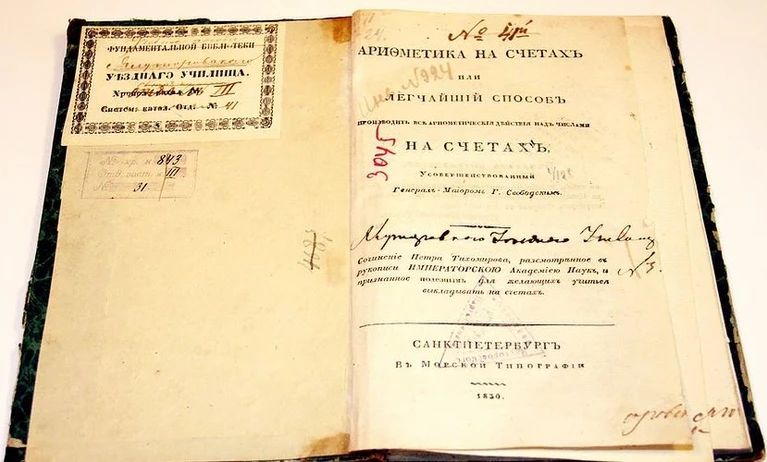 ФУНДАМЕНТАЛЬНОЙ БИБЛІОТЕКИ
УѢЗДНАГО УЧИЛИЩА.
III
Систем. катал. Отд. № 41
№ хр. к. 843
III
№ 31
№
АРИѲМЕТИКА НА СЧЕТАХЪ
ИЛИ
№ 924
ЛЕГЧАЙШІЙ СПОСОБЪ
ПРОИЗВОДИТЬ ВСѢ АРИѲМЕТИЧЕСКІЯ ДѢЙСТВІЯ НАДЪ ЧИСЛАМИ
3045
НА СЧЕТАХЪ,
Усовершенствованныхъ
Генералъ-Майоромъ Г. Свободскимъ.
Сочиненіе Петра Тихомирова, разсмотрѣнное въ
рукописи ИМПЕРАТОРСКОЮ Академіею Наукъ, и
признанное полезнымъ для желающихъ учиться
выкладывать на счетахъ.
№ 3.
САНКТПЕТЕРБУРГЪ
Въ Морской Типографіи
1830.